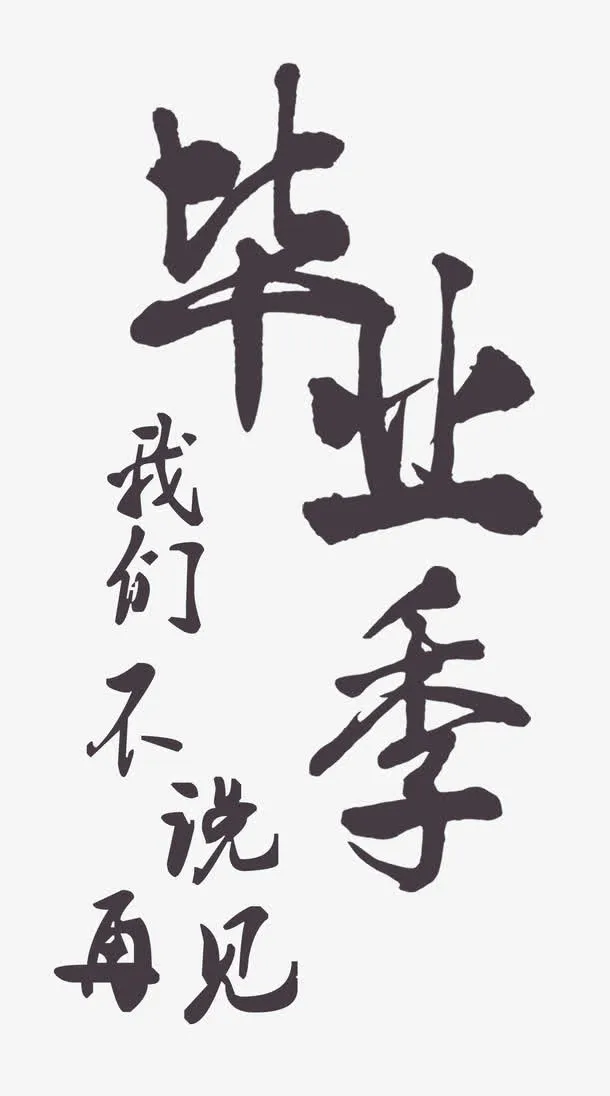 毕业季
我们不说再见